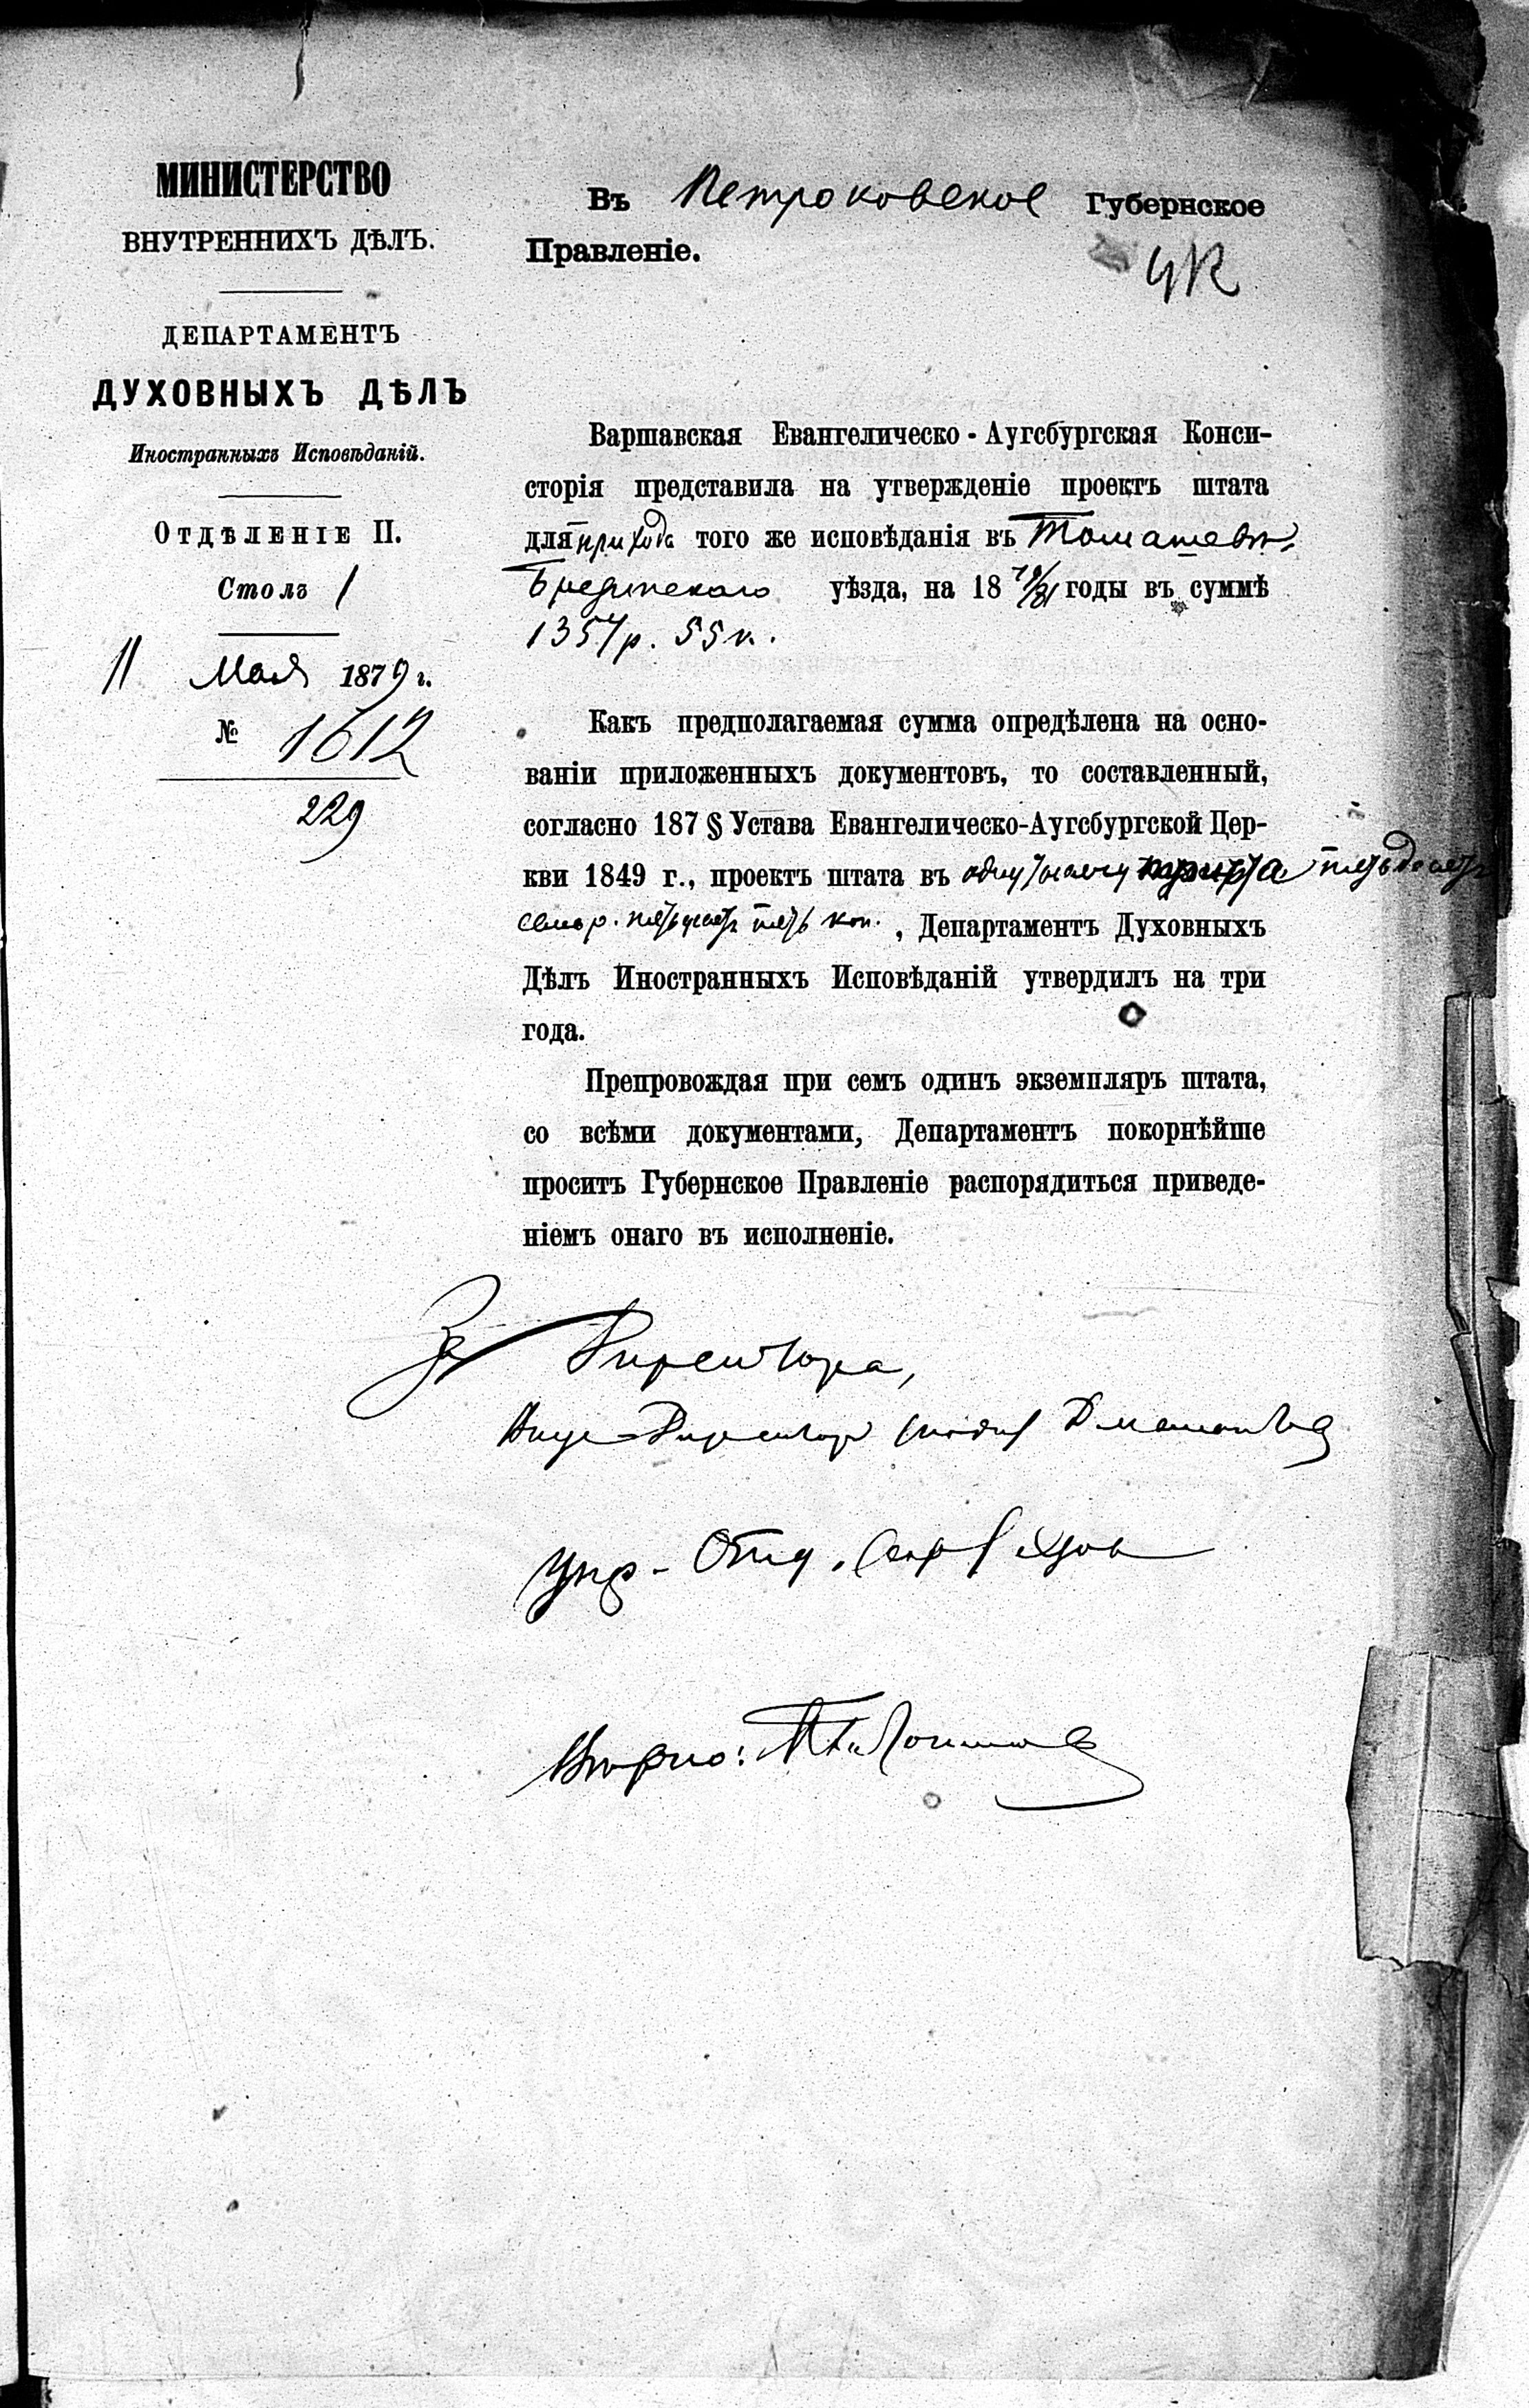 МИНИСТЕРСТВО
ВНУТРЕННИХЪ ДѢЛЪ.
ДЕПАРТАМЕНТЪ
ДУХОВНЫХЪ ДѢЛЪ
Иностранныхъ Исповѣданій.
ОТДѢЛЕНІЕ II.
Столъ 1
11 Мая 1879 г.
№ 1612
229
Въ Петроковское Губернское
Правленіе.
Варшавская Евангелическо-Аугсбургская Конси-
сторія представила на утвержденіе проектъ штата
для прихода того же исповѣданія въ Томашевѣ,
Брезинскаго уѣзда, на 18 79/81 годы въ суммѣ
1357 р. 55 к.
Какъ предполагаемая сумма опредѣлена на осно-
ваніи приложенныхъ документовъ, то составленный,
согласно 187 § Устава Евангелическо-Аугсбургской Цер-
кви 1849 г., проектъ штата въ одну тысячу триста пятьдесятъ
семь р. пятьдесятъ пять коп., Департаментъ Духовныхъ
Дѣлъ Иностранныхъ Исповѣданій утвердилъ на три
года.
Препровождая при семъ одинъ экземпляръ штата,
со всѣми документами, Департаментъ покорнѣйше
проситъ Губернское Правленіе распорядиться приведе-
ніемъ онаго въ исполненіе.
За Директора,
Вице-Директоръ
Упр. Отд.
Вѣрно: